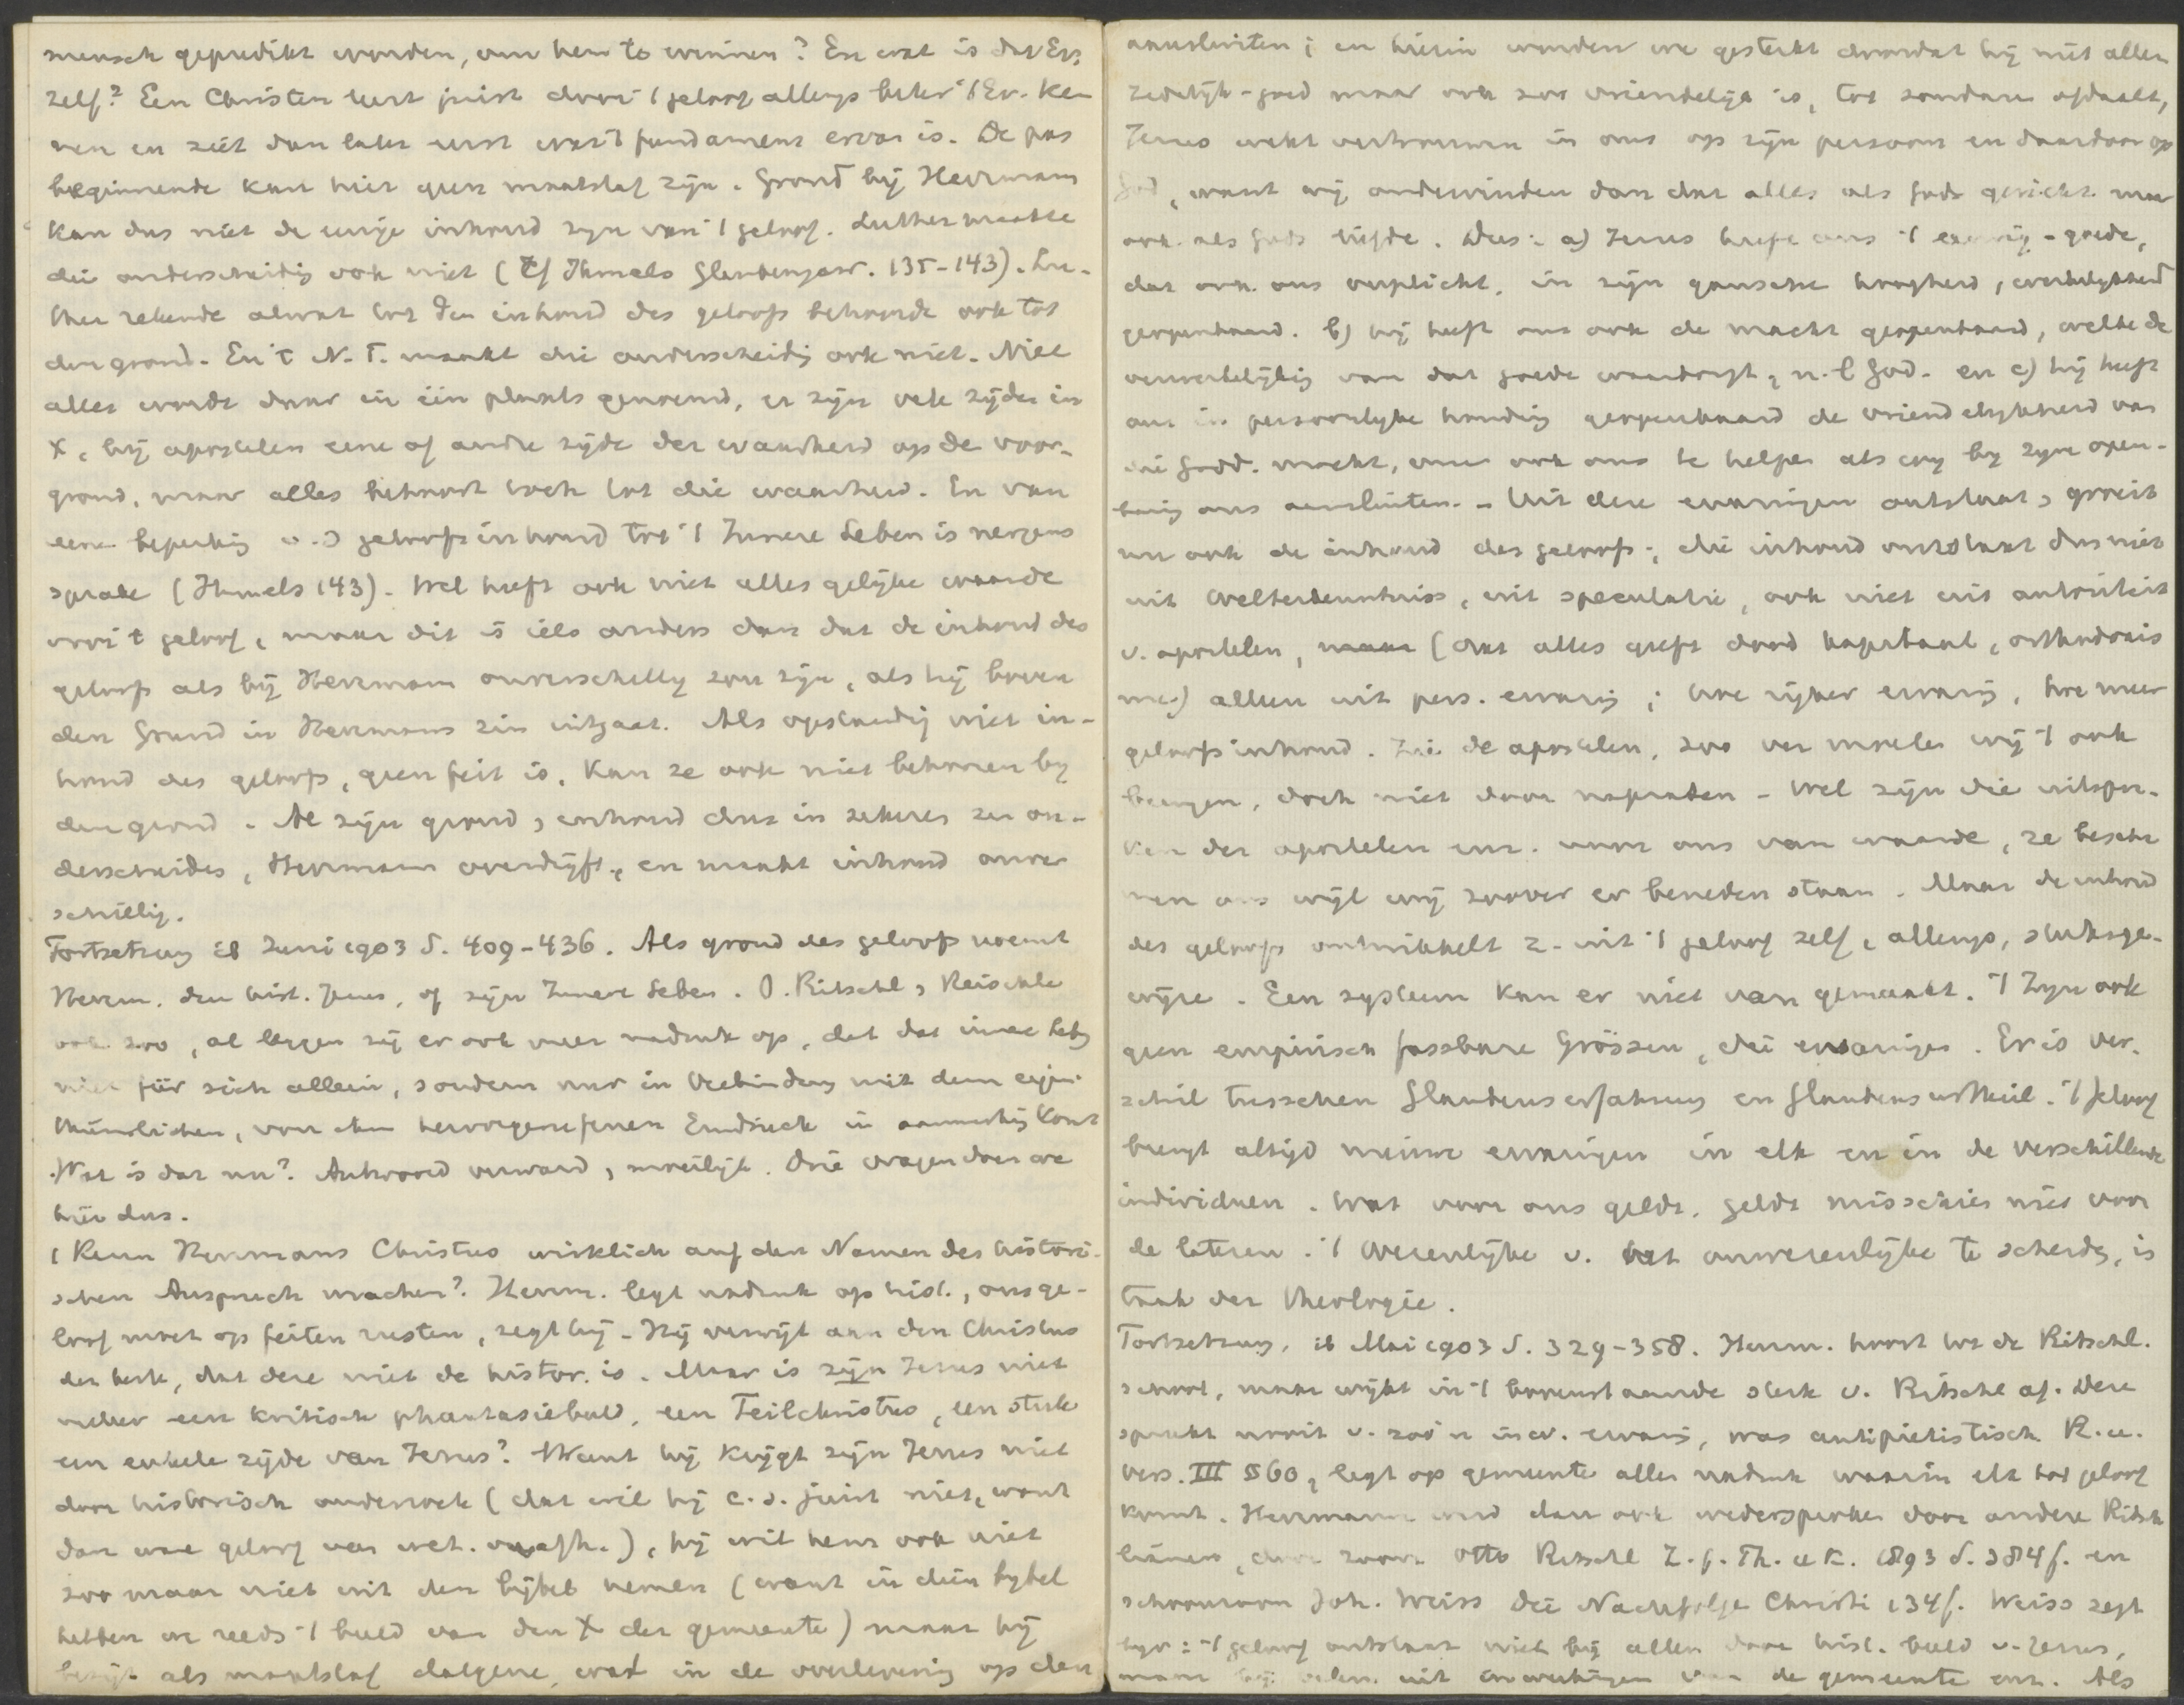 mensch gepredikt worden, om hem te winnen? En wat is dat Ev.
zelf? Een Christen leert juist door 't geloof allengs beter 't Ev. ken
nen en ziet dan later eerst wat 't fundament ervan is. De pas
beginnende kan hier geen maatstaf zijn. Grond bij Herrmann
kan dus niet de eenige inhoud zijn van 't geloof. Luther maakte
die onderscheidig ook niet (Cf Ihmels Glaubensgew. 135-143). Lu-
ther rekende alwat tot den inhoud des geloofs behoorde ook tot
den grond. En 't N.T. maakt die onderscheidig ook niet. Niet
alles wordt daar in één plaats genoemd, er zijn vele zijden in
X, bij apostelen eene of andre zijde der waarheid op de voor-
grond, maar alles behoort toch tot die waarheid. En van
eene beperking v.d geloofsinhoud tot 't Innere Leben is nergens
sprake (Ihmels 143). Wel heeft ook niet alles gelijke waarde
voor 't geloof, maar dit is iets anders dan dat de inhoud des
geloofs als bij Herrmann onverschillig zou zijn, als hij boven
den Grund in Herrmanns zin uitgaat. Als opstandig niet in-
houd des geloofs, geen feit is, kan ze ook niet behooren by
den grond. Al zijn grond, inhoud dus in zekeren zin on-
derscheiden, Herrmann overdrijft, en maakt inhoud onver
schillig.
Fortsetzung ib Juni 1903 S. 409-436. Als grond des geloofs noemt
Herrm. den hist. Jezus, of zijn Innere Leben. O. Ritschl, Reischle
ook zoo, al leggen zij er ook meer nadruk op, dat dat innere Leben
niet für sich allein, sondern nur in Verbindung mit dem eigen
thümlichen, von ihm hervorgerufenen Eindruck in aanmerkig komt
Wat is dat nu? Antwoord verward, moeilijk. Drie vragen doen we
hier dus.
1 Kann Herrmanns Christus wirklich auf den Namen des histori-
schen Anspruch machen? Herrm. legt nadruk op hist., ons ge-
loof moet op feiten rusten, zegt hij. Hij verwijt aan den Christus
der kerk, dat deze niet de histor. is. Maar is zijn Jezus niet
veeleer een kritisch phantasiebeeld, een Teilchristus, een stuk
een enkele zijde van Jezus? Want hij krijgt zijn Jezus niet
door historisch onderzoek (dat wil hij e.d. juist niet, want
dan ware geloof van wet. afh.), hij wil hem ook niet
zoo maar niet uit den bijbel nemen (want in dien bybel
hebben we reeds 't beeld van den X der gemeente) maar hij
bezigt als maatstaf datgene, wat in de overlevering op den
aansluiten; en hierin worden we gesterkt doordat hij niet alleen
zedelijk-goed maar ook zoo vriendelijk is, tot zondaren afdaalt,
Jezus wekt vertrouwen in ons op zijn persoon en daardoor op
God, want wij ondervinden dan dat alles als Gods gericht maar
ook als Gods liefde. Dus: a) Jezus heeft ons 't eeuwig-goede,
dat ook ons verplicht, in zijn gansche hoogheid, werkelijkheid
geopenbaard. b) hij heeft ons ook de macht geopenbaard, welke de
verwerkelijkig van dat goede waarborgt, n.l God. en c) hij heeft
ons in persoonlijke houding geopenbaard de vriendelijkheid van
die godd. macht, om ook ons te helpen als wij by zijn open-
baring ons aansluiten. - Uit deze ervaringen ontstaat, groeit
nu ook de inhoud des geloofs; die inhoud ontstaat dus niet
uit Welterkenntniss, uit speculatie, ook niet uit autoriteit
v. apostelen, (dat alles geeft dood kapitaal, orthodoxis
me) alleen uit pers. ervarig; hoe rijker ervarig, hoe meer
geloofsinhoud. Zie de apostelen, zoo ver moeten wij 't ook
brengen, doch niet door napraten - Wel zijn die uitspra-
ken der apostelen enz. voor ons van waarde, ze bescha
men ons wijl wij zoover er beneden staan. Maar de inhoud
des geloofs ontwikkelt z. uit 't geloof zelf, allengs, stuksge-
wijze. Een systeem kan er niet van gemaakt. 't Zijn ook
geen empirisch fassbare Grössen, die ervaringen. Er is ver-
schil tusschen Glaubenserfahrung en Glaubensurtheil. 't geloof
brengt altijd nieuwe ervaringen in elk en in de verschillende
individuen. Wat voor ons geldt, geldt misschien niet voor
de lateren. 't Wezenlijke v. het onwezenlijke te scheiden, is
taak der theologie.
Fortsetzung, ib Mai 1903 S. 329-358. Herrm. hoort tot de Ritschl.
school, maar wijkt in 't bovenstaande sterk v. Ritschl af. Deze
spreekt nooit v. zoo'n indiv. ervarig, was antipietistisch R.u.
Vers. III § 60, legt op gemeente allen nadruk waarin elk tot geloof
komt. Herrmann werd dan ook wedersproken door andere Ritsch
lianen, door zoon Otto Ritschl Z.f.Th.u K. 1893 S. 384f. en
schoonzoon Joh. Weiss Die Nachfolge Christi 134f. Weiss zegt
bijv: 't geloof ontstaat niet bij allen door hist. beeld v. Jezus,
maar bij velen uit inwerkingen van de gemeente enz. Als